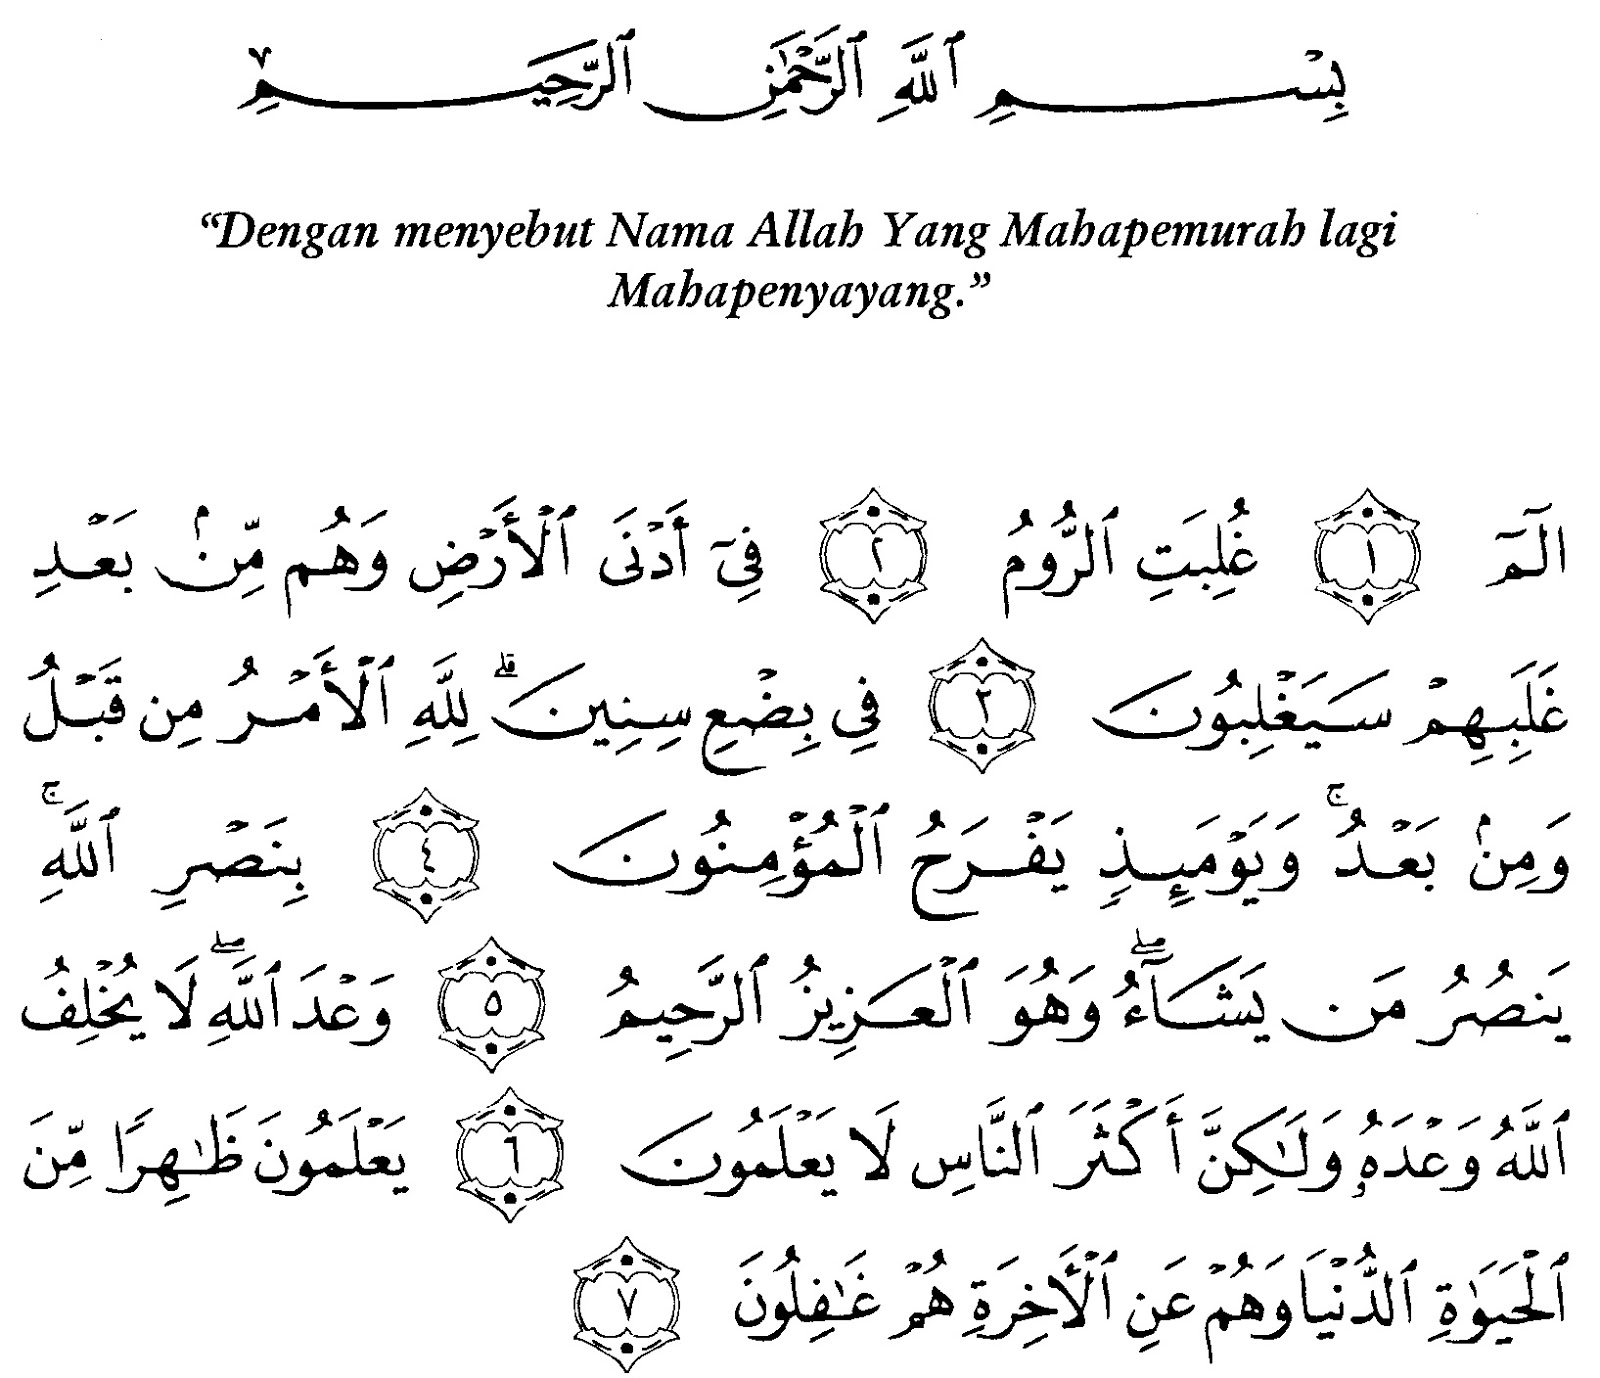 بِسْمِ ٱللَّهِ ٱلرَّحْمَٰنِ ٱلرَّحِيمِ
“Dengan menyebut Nama Allah Yang Mahapemurah lagi
Mahapenyayang.”
الٓمٓ ١ غُلِبَتِ ٱلرُّومُ ٢ فِىٓ أَدْنَى ٱلْأَرْضِ وَهُم مِّنۢ بَعْدِ
غَلَبِهِمْ سَيَغْلِبُونَ ٣ فِى بِضْعِ سِنِينَ ۗ لِلَّهِ ٱلْأَمْرُ مِن قَبْلُ
وَمِنۢ بَعْدُ ۚ وَيَوْمَئِذٍ يَفْرَحُ ٱلْمُؤْمِنُونَ ٤ بِنَصْرِ ٱللَّهِ ۚ
يَنصُرُ مَن يَشَآءُ ۖ وَهُوَ ٱلْعَزِيزُ ٱلرَّحِيمُ ٥ وَعْدَ ٱللَّهِ ۖ لَا يُخْلِفُ
ٱللَّهُ وَعْدَهُۥ وَلَٰكِنَّ أَكْثَرَ ٱلنَّاسِ لَا يَعْلَمُونَ ٦ يَعْلَمُونَ ظَٰهِرًا مِّنَ
ٱلْحَيَوٰةِ ٱلدُّنْيَا وَهُمْ عَنِ ٱلْأَخِرَةِ هُمْ غَٰفِلُونَ ٧